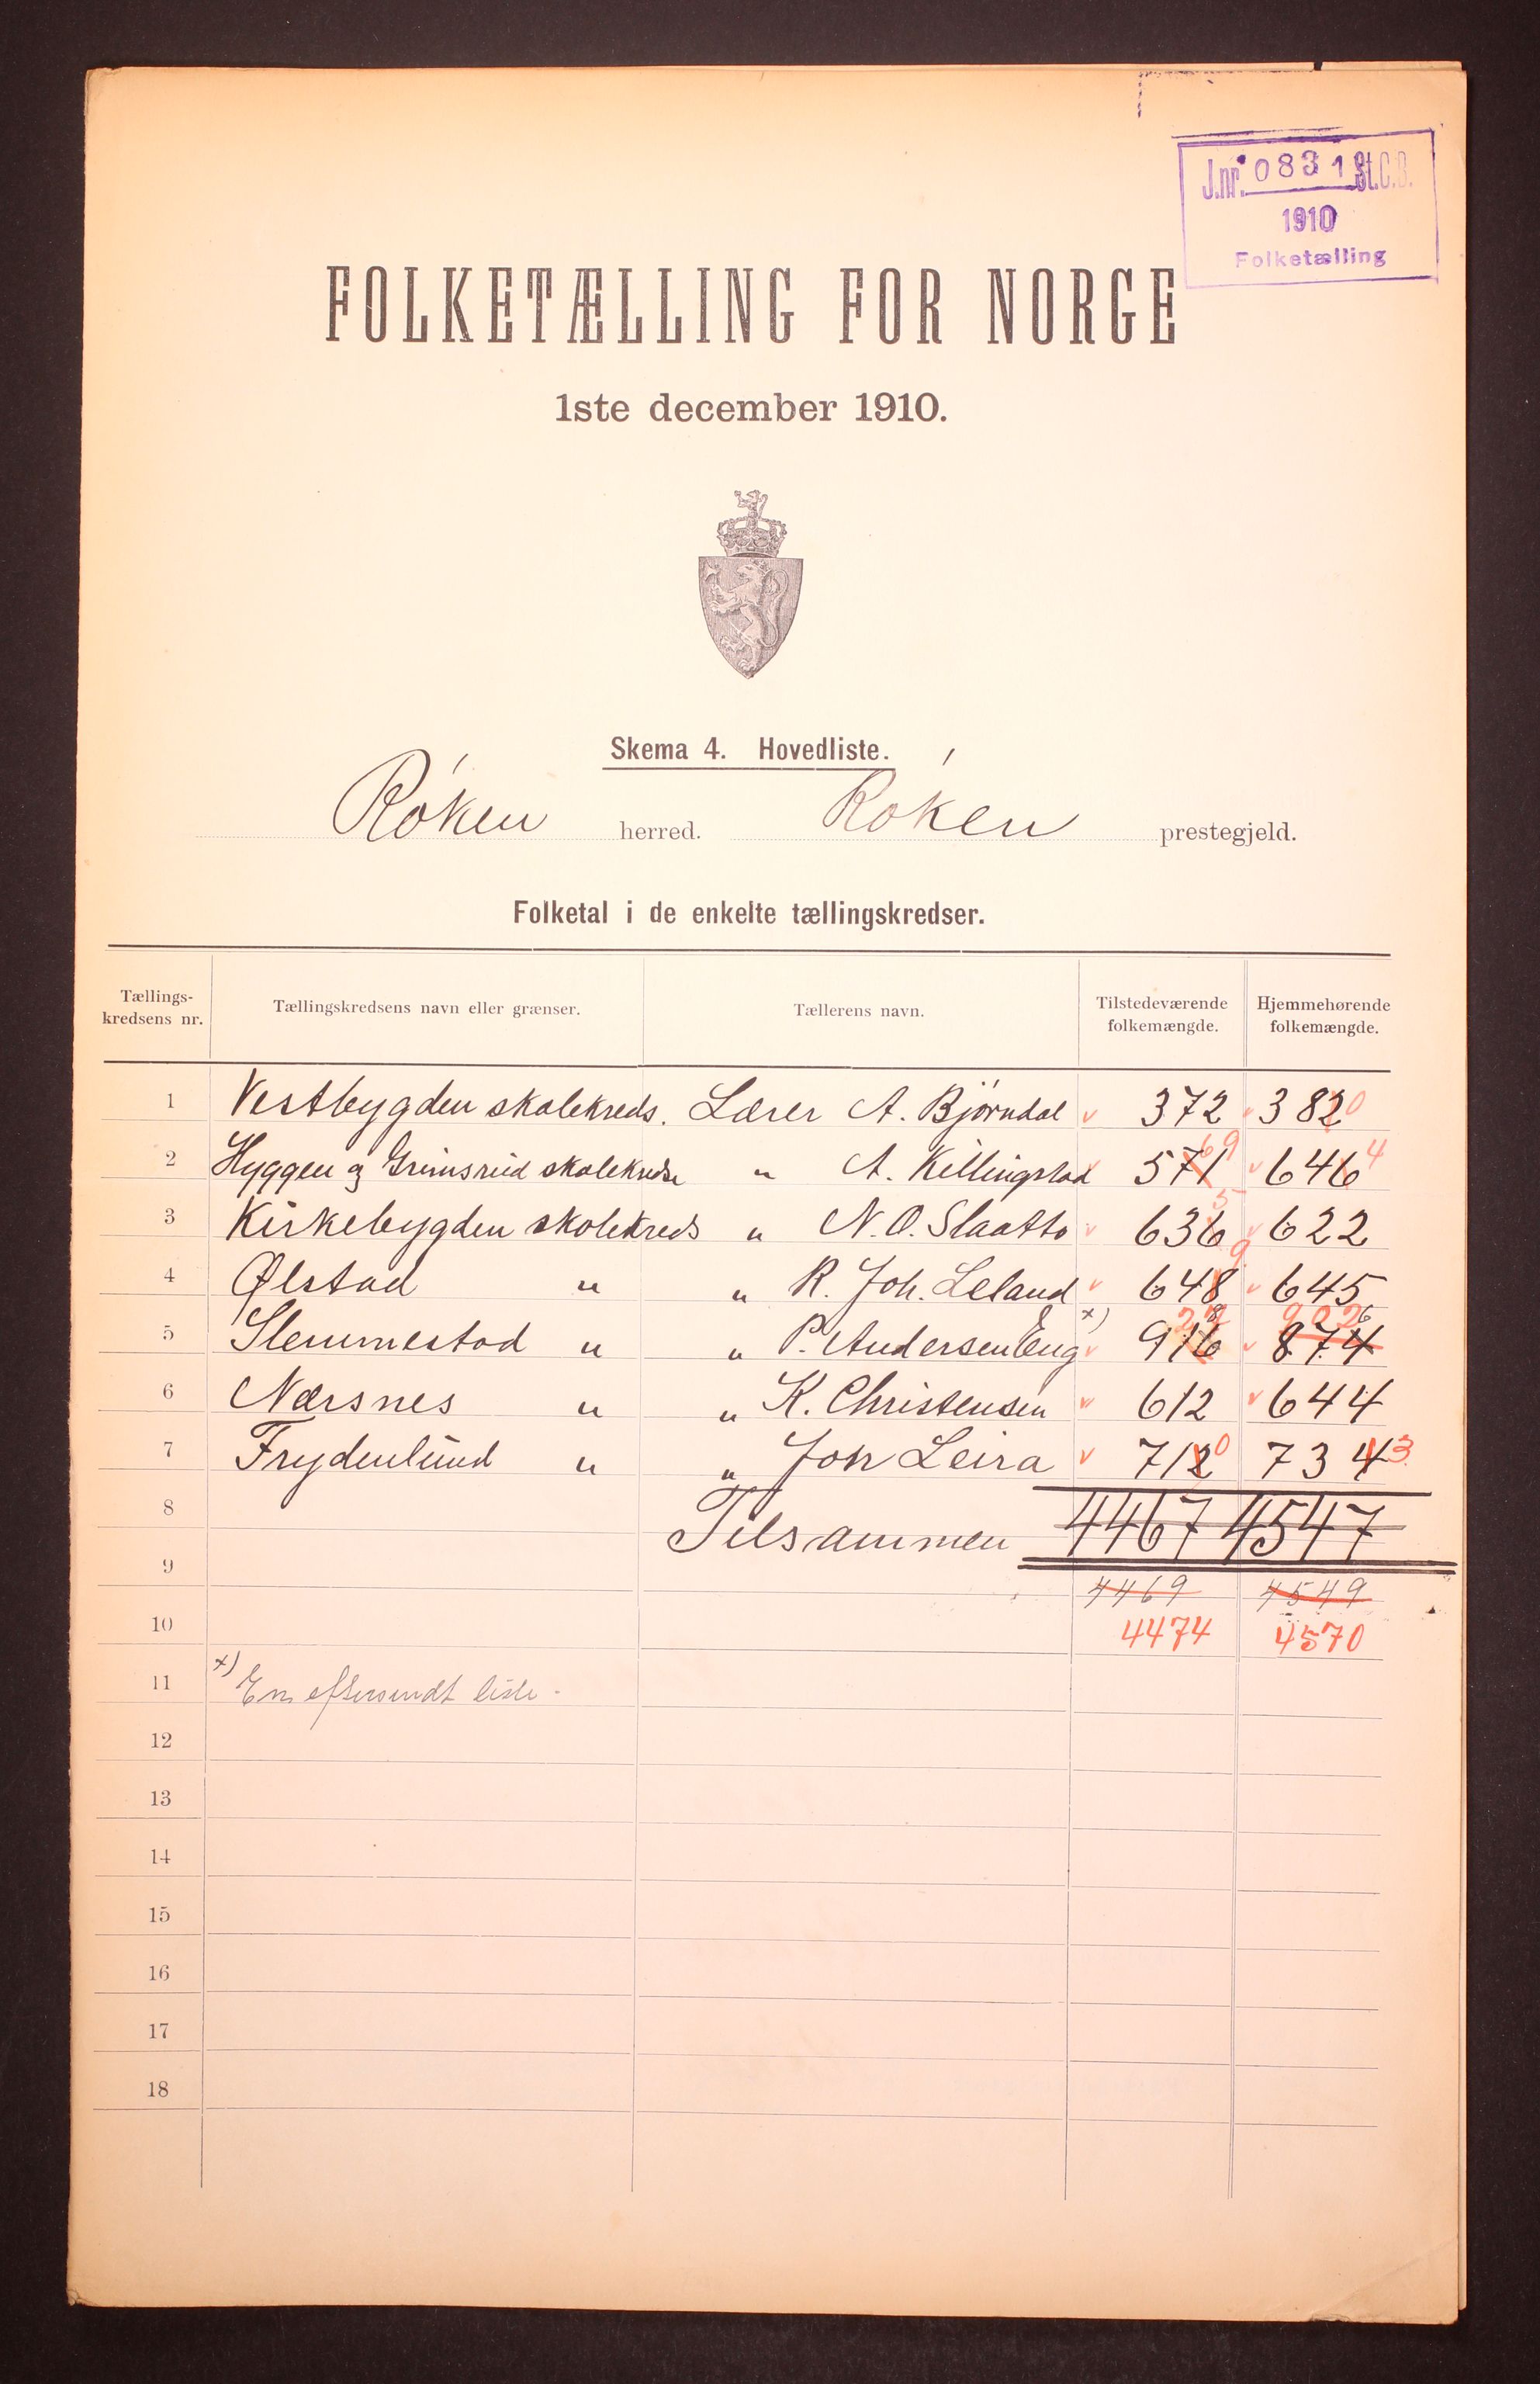 J.nr. 0831 St.C.B.
1910
Folketælling
FOLKETÆLLING FOR NORGE
1ste december 1910.
Skema 4. Hovedliste.
Røken herred. Røken prestegjeld.
Folketal i de enkelte tællingskredser.
Tællings-kredsens nr. Tællingskredsens navn eller grænser. Tællerens navn. Tilstedeværende folkemængde. Hjemmehørende folkemængde.
1 Vestbygden skolekreds. Lærer A. Bjørndal 372 382 0
2 Hyggen og Grimsrud skolekredse " A. Killingstad 571 69 646 4
3 Kirkebygden skolekreds " N. O. Slaatto 636 5 622
4 Ølstad " " R. Joh. Leland 648 9 645
5 Slemmestad " " P. Andersen Eng x) 916 874 902 6
6 Nærsnes " " K. Christensen 612 644
7 Frydenlund " " Jon Leira 712 0 734 3
8 Tilsammen 4467 4547
9 4469 4549
10 4474 4570
11 x) En eftersendt liste.
12
13
14
15
16
17
18